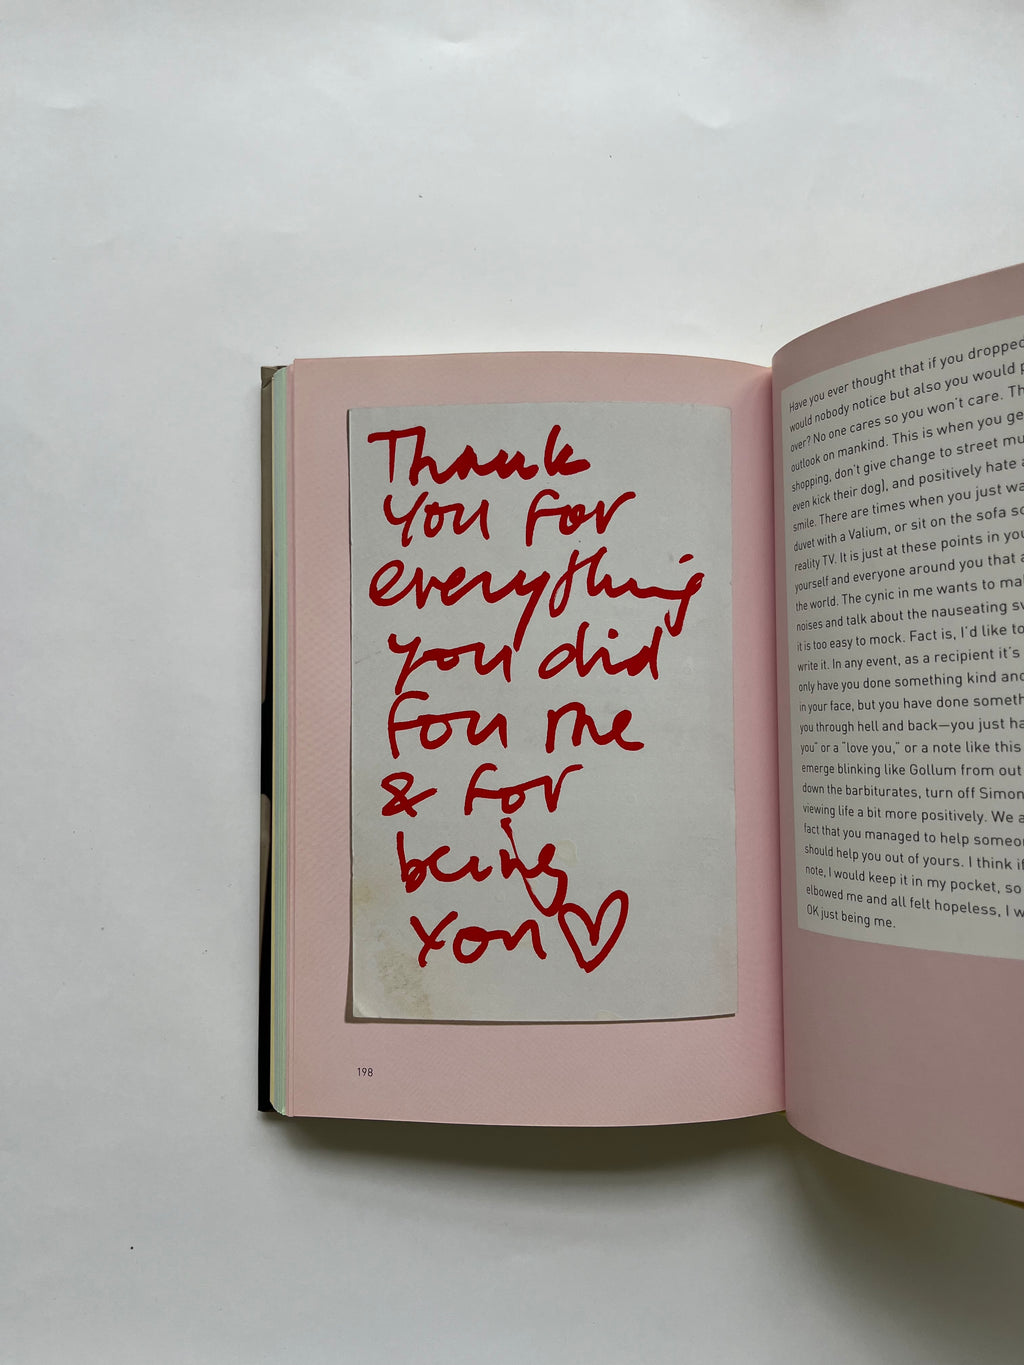 Thank
You for
everything
you did
For me
& For
being
You
198
Have you ever thought that if you dropped
would nobody notice but also you would
over? No one cares so you won't care. Th
outlook on mankind. This is when you ge
shopping, don't give change to street mu
even kick their dog), and positively hate
smile. There are times when you just wa
duvet with a Valium, or sit on the sofa
reality TV. It is just at these points in you
yourself and everyone around you that
the world. The cynic in me wants to ma
noises and talk about the nauseating
it is too easy to mock. Fact is, I'd like to
write it. In any event, as a recipient it's
only have you done something kind and
in your face, but you have done someth
you through hell and back—you just ha
you" or a "love you," or a note like this
emerge blinking like Gollum from out
down the barbiturates, turn off Simon
viewing life a bit more positively. We
fact that you managed to help someo
should help you out of yours. I think
note, I would keep it in my pocket, so
elbowed me and all felt hopeless, I w
OK just being me.